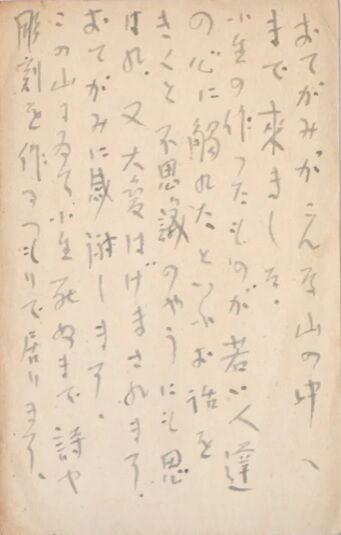 おてがみがこんな山の中、
まで来ました。
小生の作つたものが若い人達
の心に触れたといふお話を
きくと不思議のやうにも思
はれ、又大変はげまされます。
おてがみに感謝します。
この山にゐて小生死ぬまで詩や
彫刻を作るつもりで居ります。